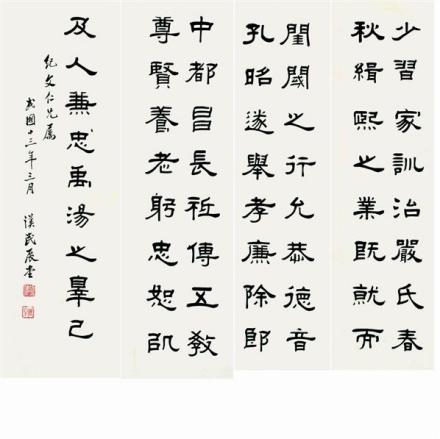 少習家訓治嚴氏春
秋緝熙之業既就而
閨閾之行允恭德音
孔昭遂舉孝廉除郎
中都昌長祗傳五教
尊賢養老躬忠恕㕥
及人兼忠禹湯之辠己
紀文仁兄屬
民國十三年三月 漢民展堂